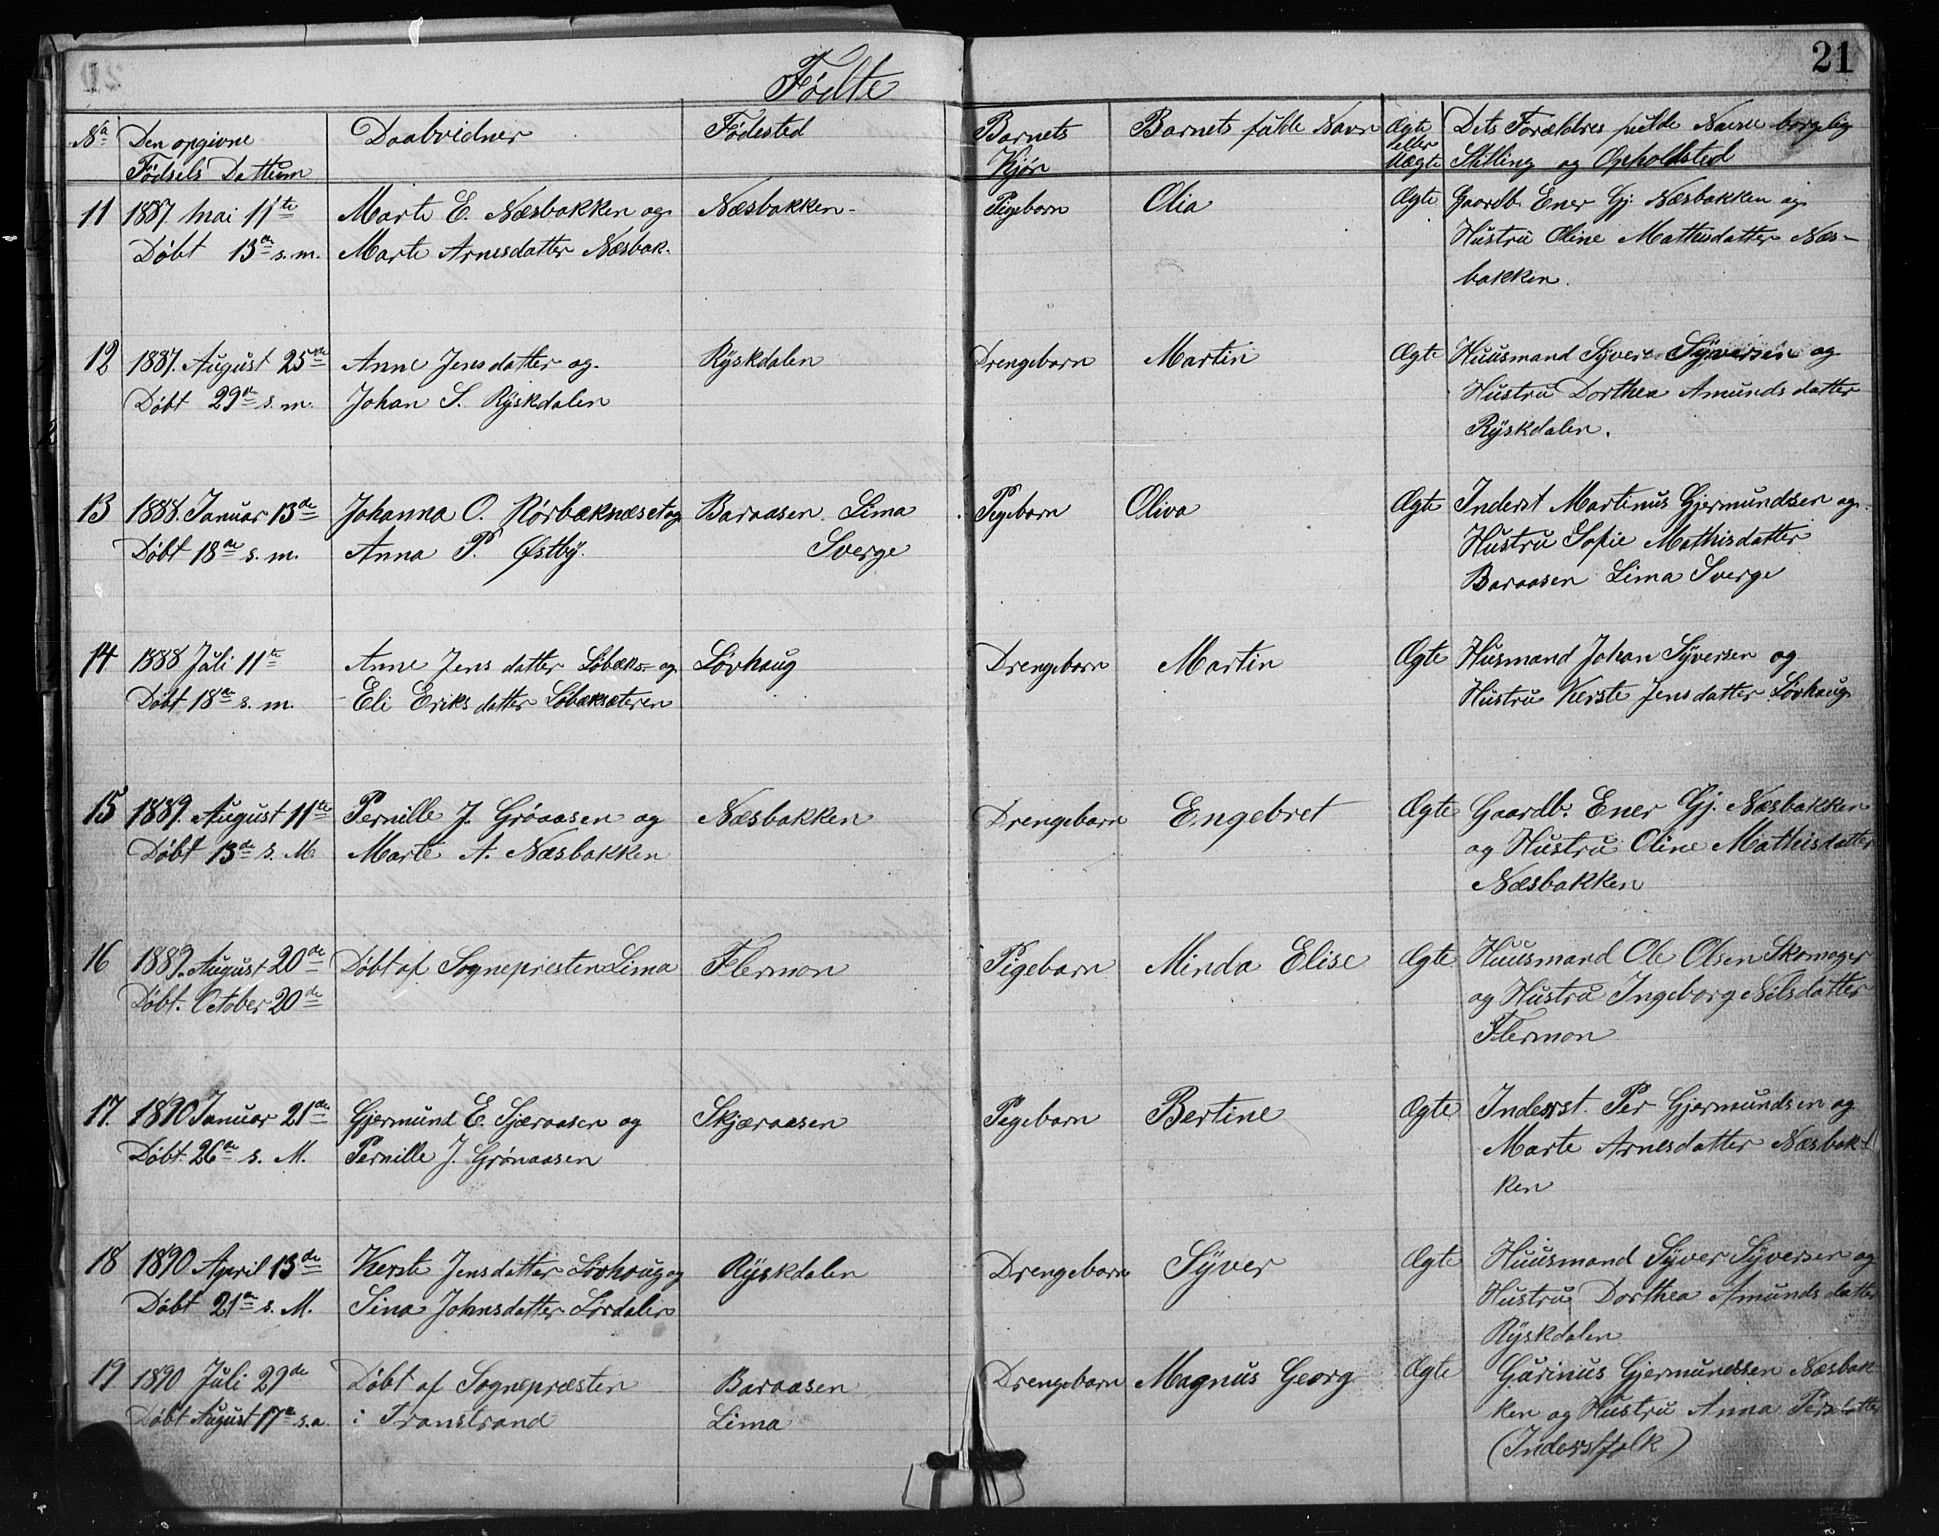 21
Fødte
No Den opgivne Fødsels Dattum | Daabvidner | Fødested | Barnets Kjøn | Barnets fulde Navn | Ægte eller Uægte | Dets Forældres fulde Navne borgelig Stilling og Opholdsted
11 1887. Mai 11te Marte E. Næsbakken og Næsbakken Pigebarn Olia Ægte Gaardb. Ener Gj. Næsbakken og
Døbt 13de s. m. Marte Arnesdatter Næsbak. Hustru Oline Mathisdatter Næs-
bakken.
12 1887. August 25de Anne Jensdatter og Ryskdalen Drengebarn Martin Ægte Huusmand Syver Syversen og
Døbt 29de s. m. Johan S. Ryskdalen Hustru Dorthea Amundsdatter
Ryskdalen.
13 1888. Januar 13de Johanna O. Rørbæknæset og Baraasen Lima Pigebarn Oliva Ægte Inderst Martinus Gjermundsen og
Døbt 18de s. m. Anna P. Østby. Sverge Hustru Sofie Mathisdatter
Baraasen Lima Sverge
14 1888 Juli 11te Anne Jensdatter Løbæks- og Løvhaug Drengebarn Martin Ægte Husmand Johan Syversen og
Døbt 18de s. m. Eli Eriksdatter Løbæksæteren Hustru Kerste Jensdatter Løvhaug
15 1889. August 11te Pernille J. Grønaasen og Næsbakken Drengebarn Engebret Ægte Gaardb. Ener Gj. Næsbakken
Døbt 13de s. M Marte A. Næsbakken og Hustru Oline Mathisdatter
Næsbakken
16 1889. August 20de Døbt af Sognepresten Lima Flermon Pigebarn Minda Elise Ægte Huusmand Ole Olsen Skomager
Døbt. October 20de og Hustru Ingeborg Nilsdatter
Flermon
17. 1890 Januar 21de Gjermund E. Sjæraasen og Skjæraasen Pigebarn Bertine Ægte Inderst. Per Gjermundsen og
Døbt 26de s. M. Pernille J. Grønaasen Marte Arnesdatter Næsbak-
ken
18 1890 April 13de Kerste Jensdatter Løvhaug og Ryskdalen Drengebarn Syver Ægte Huusmand Syver Syversen og
Døbt 21de s. M. Sina Johnsdatter Lørdalen Hustru Dorthea Amundsdatter
Ryskdalen
19. 1890 Juli 29de Døbt af Sognepræsten Baraasen Drengebarn Magnus Georg Ægte Gurinus Gjermundsen Næsbak-
Døbt August 17de s.a. i Transtrand Lima ken og Hustru Anna Persdatter
(Inderstfolk)